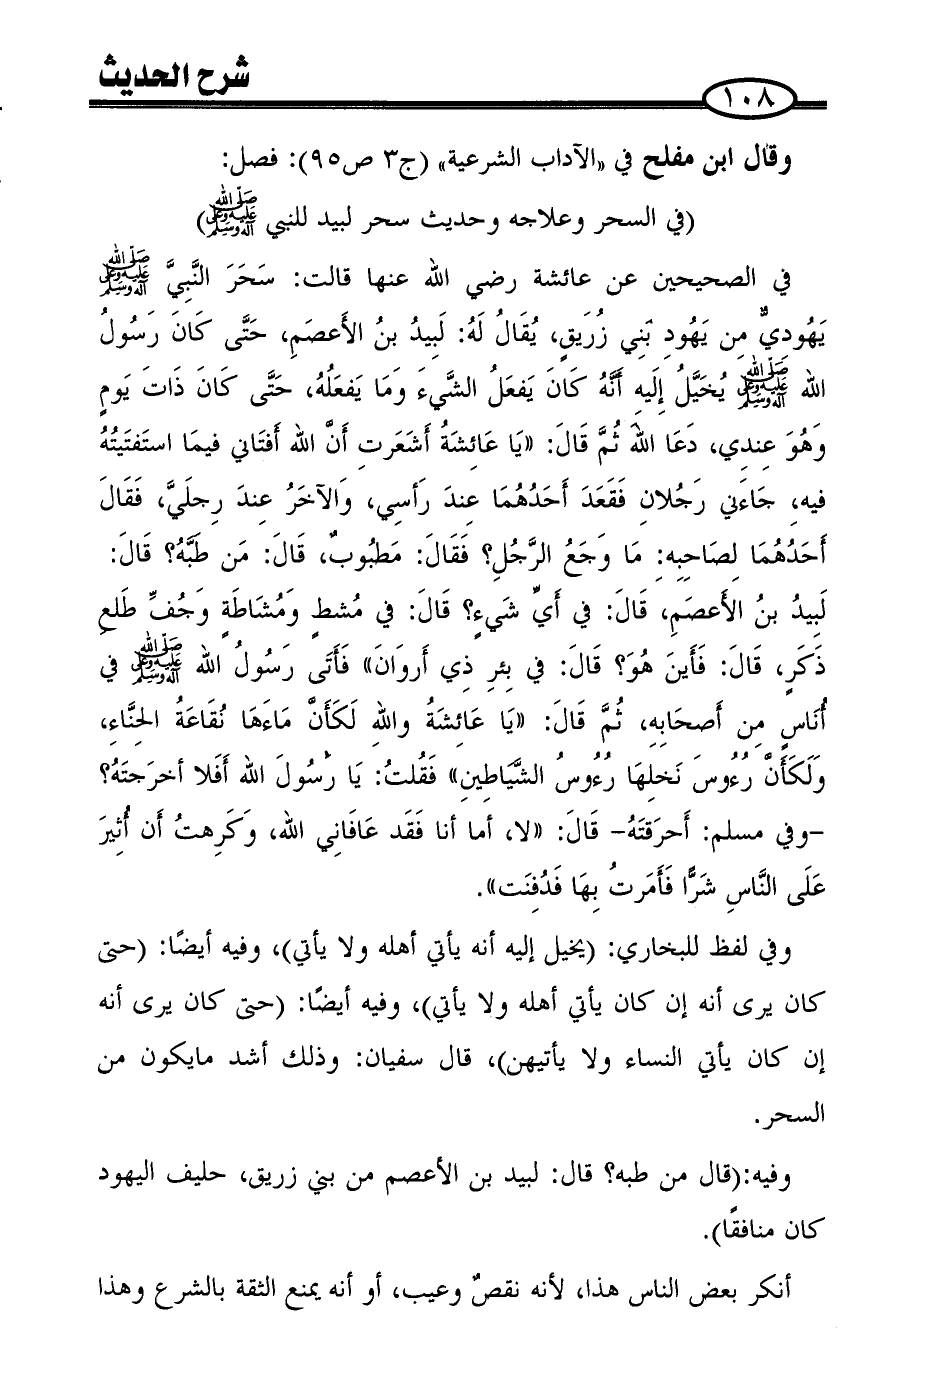 شرح الحديث
١٠٨
وقال ابن مفلح في «الآداب الشرعية» (ج٣ ص٩٥): فصل:
(في السحر وعلاجه وحديث سحر لبيد للنبي ﷺ)
في الصحيحين عن عائشة رضي الله عنها قالت: سَحَرَ النَّبِيَّ ﷺ
يَهُوديٌّ مِن يَهُودِ بَني زُرَيقٍ، يُقَالُ لَهُ: لَبِيدُ بنُ الأَعصَمِ، حَتَّى كَانَ رَسُولُ
الله ﷺ يُخَيَّلُ إِلَيهِ أَنَّهُ كَانَ يَفعَلُ الشَّيءَ وَمَا يَفعَلُهُ، حَتَّى كَانَ ذَاتَ يَومٍ
وَهُوَ عِندِي، دَعَا اللهَ ثُمَّ قَالَ: «يَا عَائِشَةُ أَشَعَرتِ أَنَّ اللهَ أَفتَاني فيمَا استَفتَيتُهُ
فيهِ، جَاءَني رَجُلان فَقَعَدَ أَحَدُهُمَا عِندَ رَأسِي، وَالآخَرُ عِندَ رِجلَيَّ، فَقَالَ
أَحَدُهُمَا لِصَاحِبِهِ: مَا وَجَعُ الرَّجُلِ؟ فَقَالَ: مَطبُوبٌ، قَالَ: مَن طَبَّهُ؟ قَالَ:
لَبِيدُ بنُ الأَعصَمِ، قَالَ: في أَيِّ شَيءٍ؟ قَالَ: في مُشطٍ وَمُشَاطَةٍ وَجُفِّ طَلعِ
ذَكَرٍ، قَالَ: فَأَينَ هُوَ؟ قَالَ: في بِئرِ ذي أَروَانَ» فَأَتَى رَسُولُ الله ﷺ في
أُنَاسٍ مِن أَصحَابِهِ، ثُمَّ قَالَ: «يَا عَائِشَةُ واللهِ لَكَأَنَّ مَاءَهَا نُقَاعَةُ الحِنَّاءِ،
وَلَكَأَنَّ رُءُوسَ نَخلِهَا رُءُوسُ الشَّيَاطِينِ» فَقُلتُ: يَا رَسُولَ الله أَفَلا أخرَجتَهُ؟
-وفي مسلم: أَحرَقتَهُ- قَالَ: «لا، أما أنا فَقَد عَافَاني الله، وَكَرِهتُ أَن أُثِيرَ
عَلَى النَّاسِ شَرًّا فَأَمَرتُ بِهَا فَدُفِنَت».
وفي لفظ للبخاري: (يخيل إليه أنه يأتي أهله ولا يأتي)، وفيه أيضًا: (حتى
كان يرى أنه إن كان يأتي أهله ولا يأتي)، وفيه أيضًا: (حتى كان يرى أنه
إن كان يأتي النساء ولا يأتيهن)، قال سفيان: وذلك أشد مايكون من
السحر.
وفيه:(قال من طبه؟ قال: لبيد بن الأعصم من بني زريق، حليف اليهود
كان منافقًا).
أنكر بعض الناس هذا، لأنه نقصٌ وعيب، أو أنه يمنع الثقة بالشرع وهذا